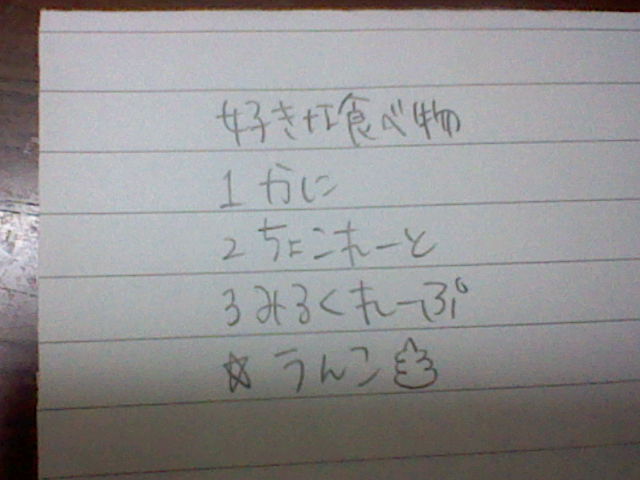 好きな食べ物
1 かに
2 ちょこれーと
3 みるくれーぷ
☆ うんこ